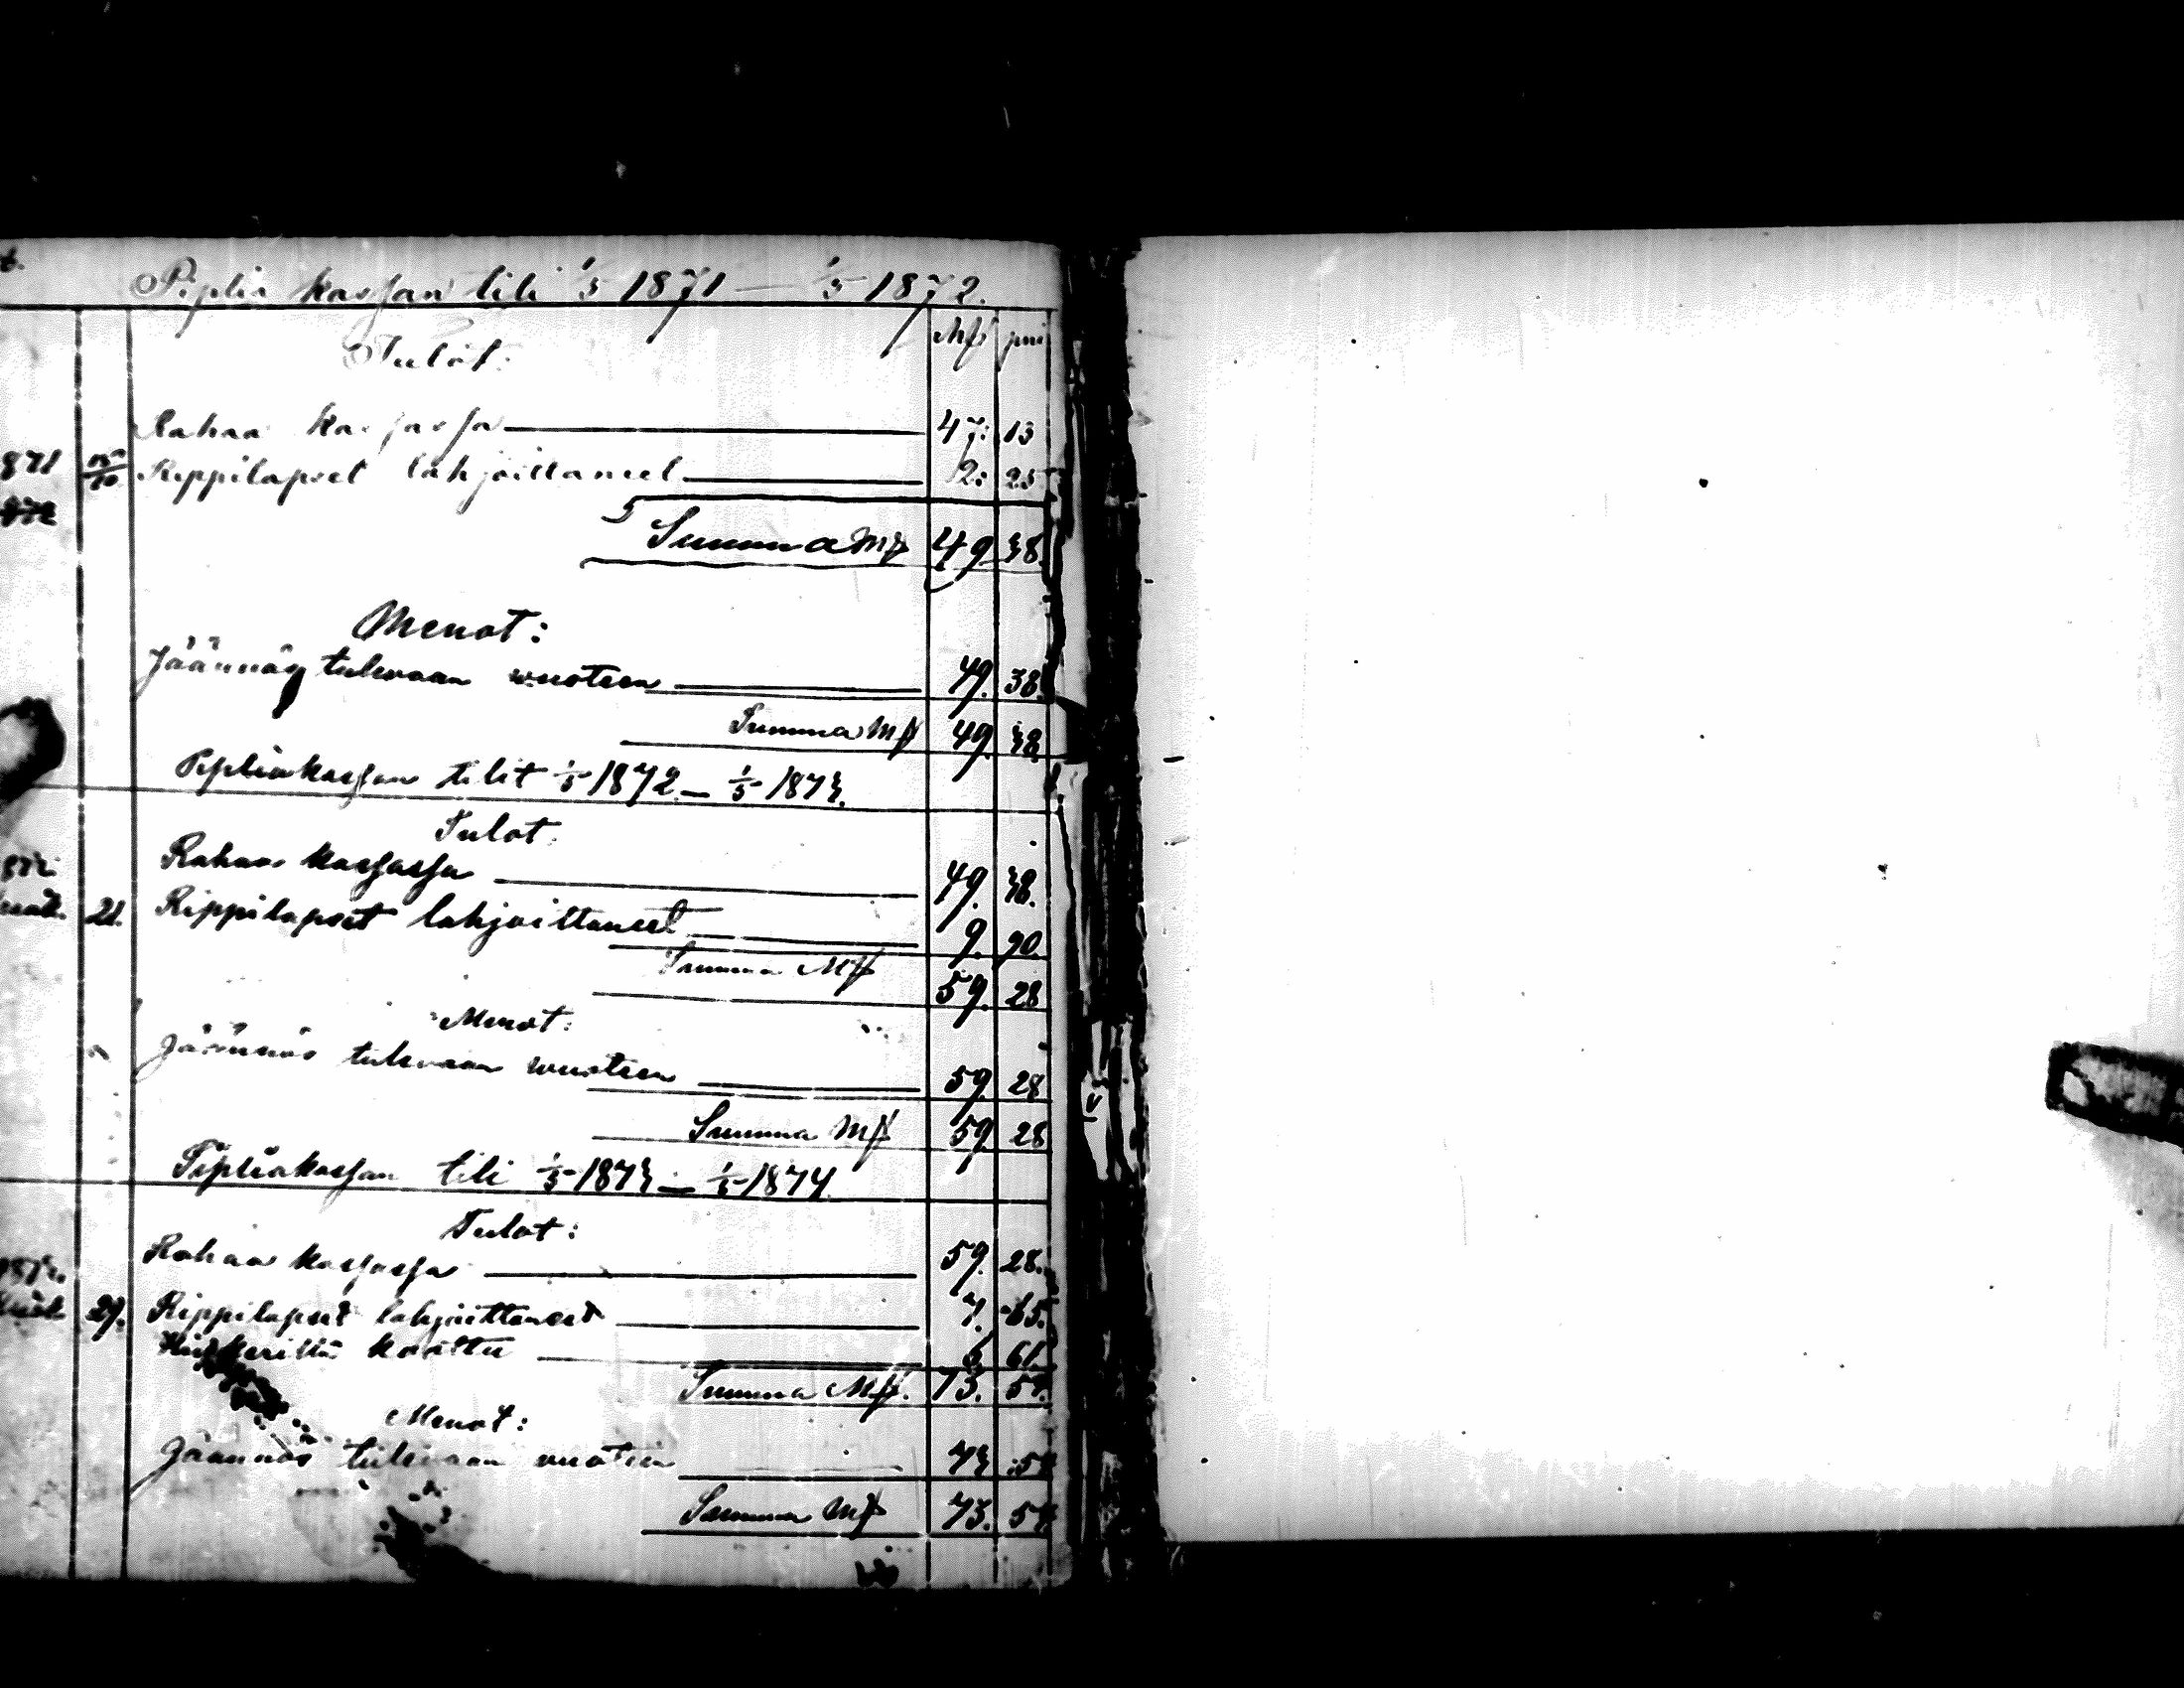 Piplia kassan tili 1/5 1871 — 1/5 1872.
Mk pni
Tulot:
Rahaa kassassa 47: 13
871 15/10 Rippilapset lahjoittaneet 2: 25
872
Summa Mk 49 38.
Menot:
Jäännös tulevaan vuoteen 49. 38.
Summa Mk 49. 38.
Pipliakassan tilit 1/5 1872 — 1/5 1873.
Tulot.
Rahaa kassassa 49. 38.
21. Rippilapset lahjoittaneet 9. 90.
Summa Mk 59. 28
Menot:
Jäännös tulevaan vuoteen 59. 28
Summa Mk 59. 28
Pipliakassan tili 1/5 1873 — 1/5 1874
Tulot:
Rahaa kassassa 59. 28.
29. Rippilapset lahjoittaneet 7. 65.
koottu 6 61.
Summa Mk. 73. 54.
Menot:
Jäännös tulevaan vuoteen 73 54
Summa Mk 73. 54